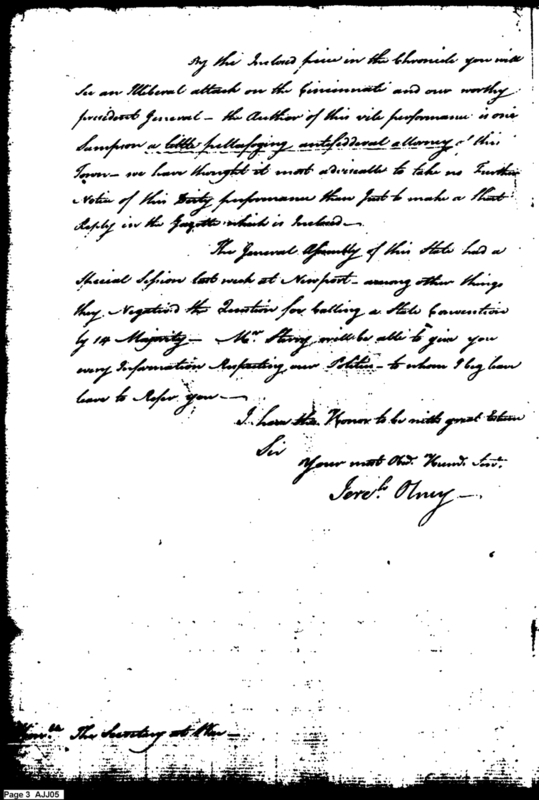 By the Inclosed piece in the Chronicle you will
see an Illiberal attack on the Cincinnati and our worthy
president General — the Author of this vile performance is one
Sampson a little pettafoging antifederal attorney of this
Town — we have thought it most adviseable to take no Further
Notice of this Dirty performance than Just to make a Short
Reply in the Gazette which is Inclosed —
The General Assembly of this State had a
Special Session last week at Newport — among other things
they Negatived the Question for Calling a State Convention
by 14 Majority — Mr. Sherry will be able to give you
every Information Respecting our Politics — to whom I beg leave
leave to Refer you —
I have the Honor to be with great Esteem
Sir
Your most Obd. Humb. Servt.
Jereh. Olney —
Honble. The Secretary at War —
Page 3 AJJ05